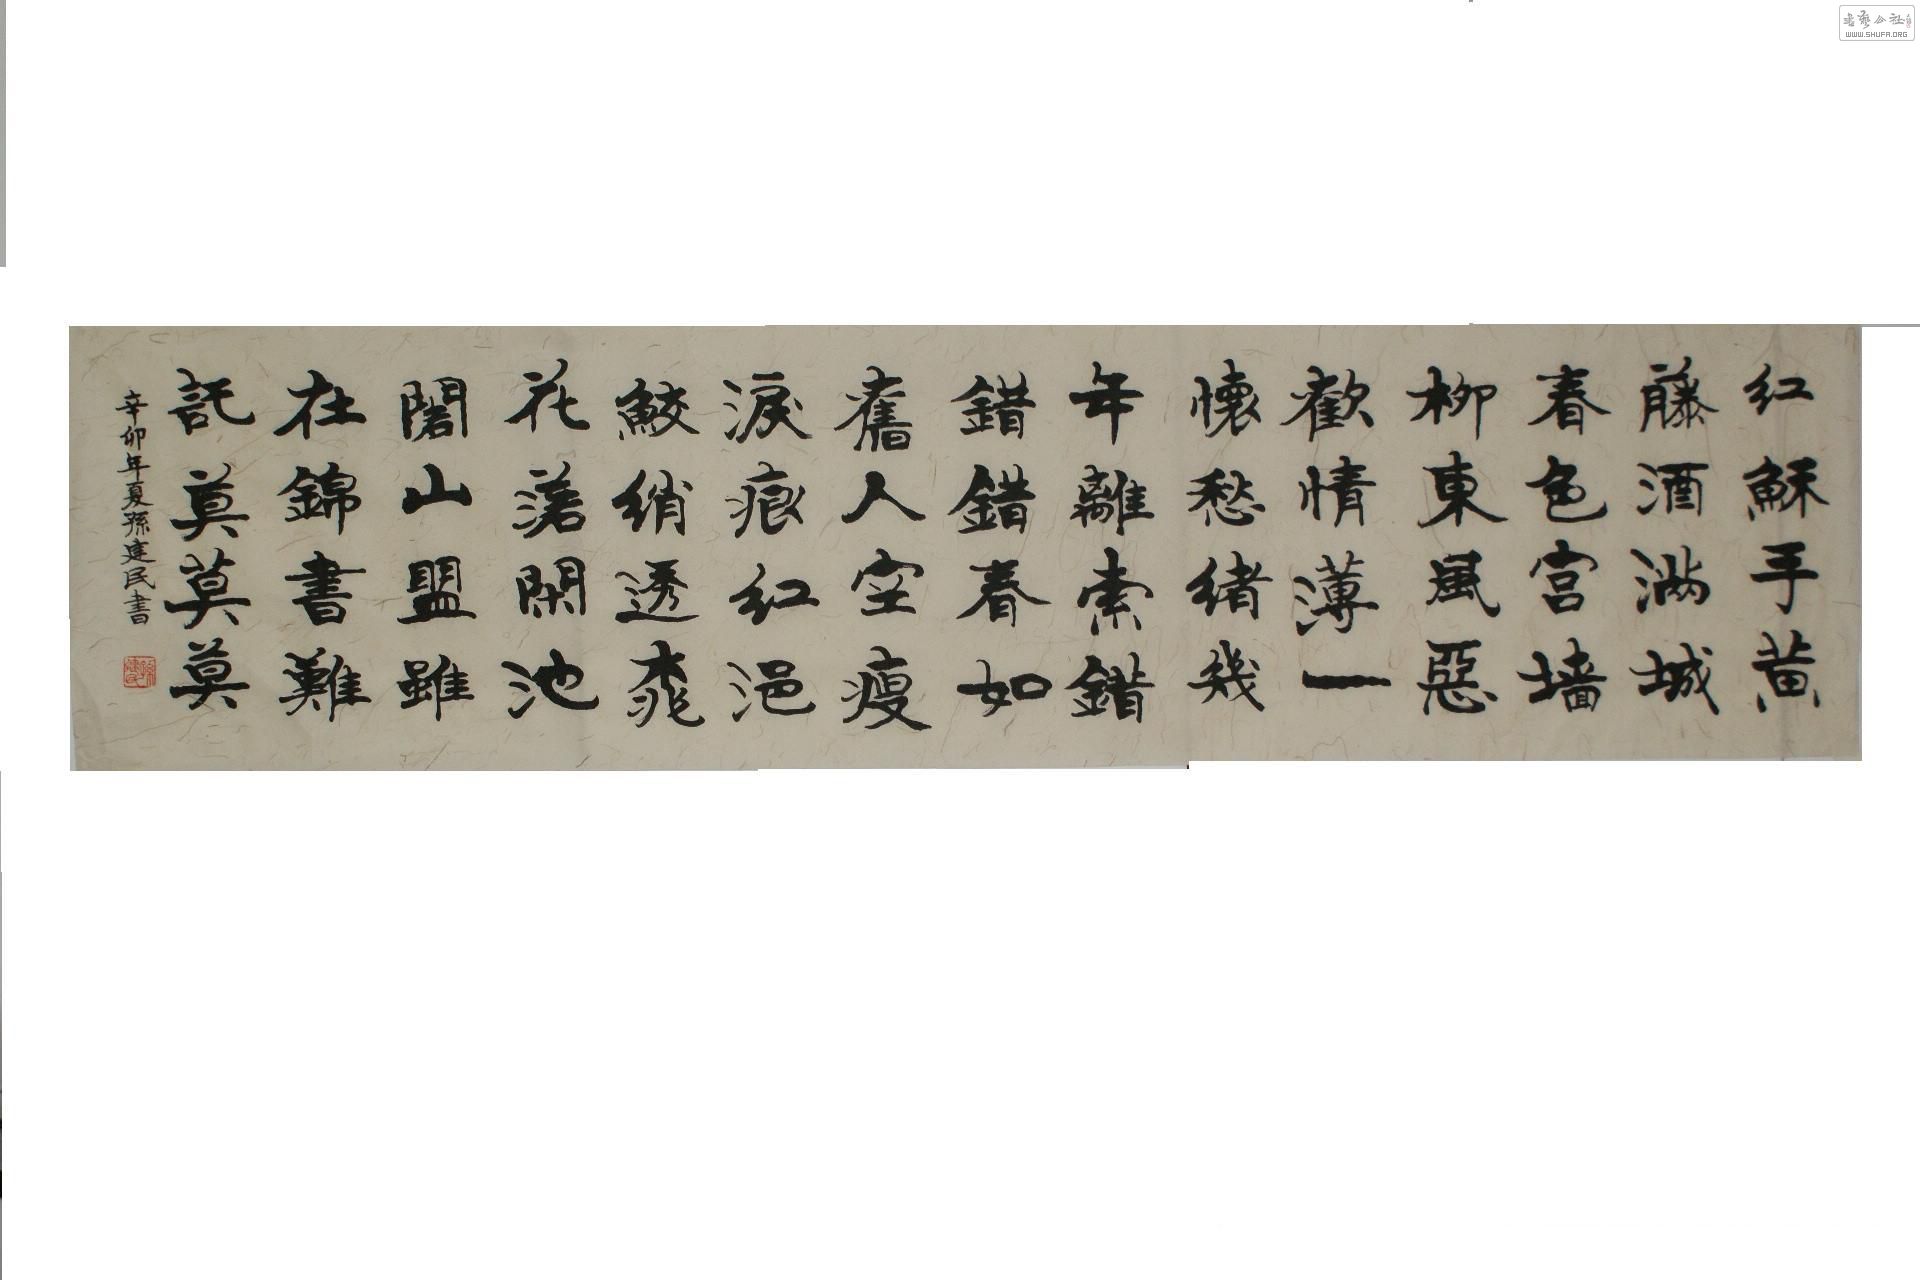 红酥手黄
藤酒满城
春色宫墙
柳東風惡
歡情薄一
懷愁緒幾
年離索錯
錯錯春如
舊人空瘦
淚痕红浥
鮫綃透桃
花落閑池
閣山盟雖
在錦書難
託莫莫莫
辛卯年夏孫建民書
書藝公社
WWW.SHUFA.ORG